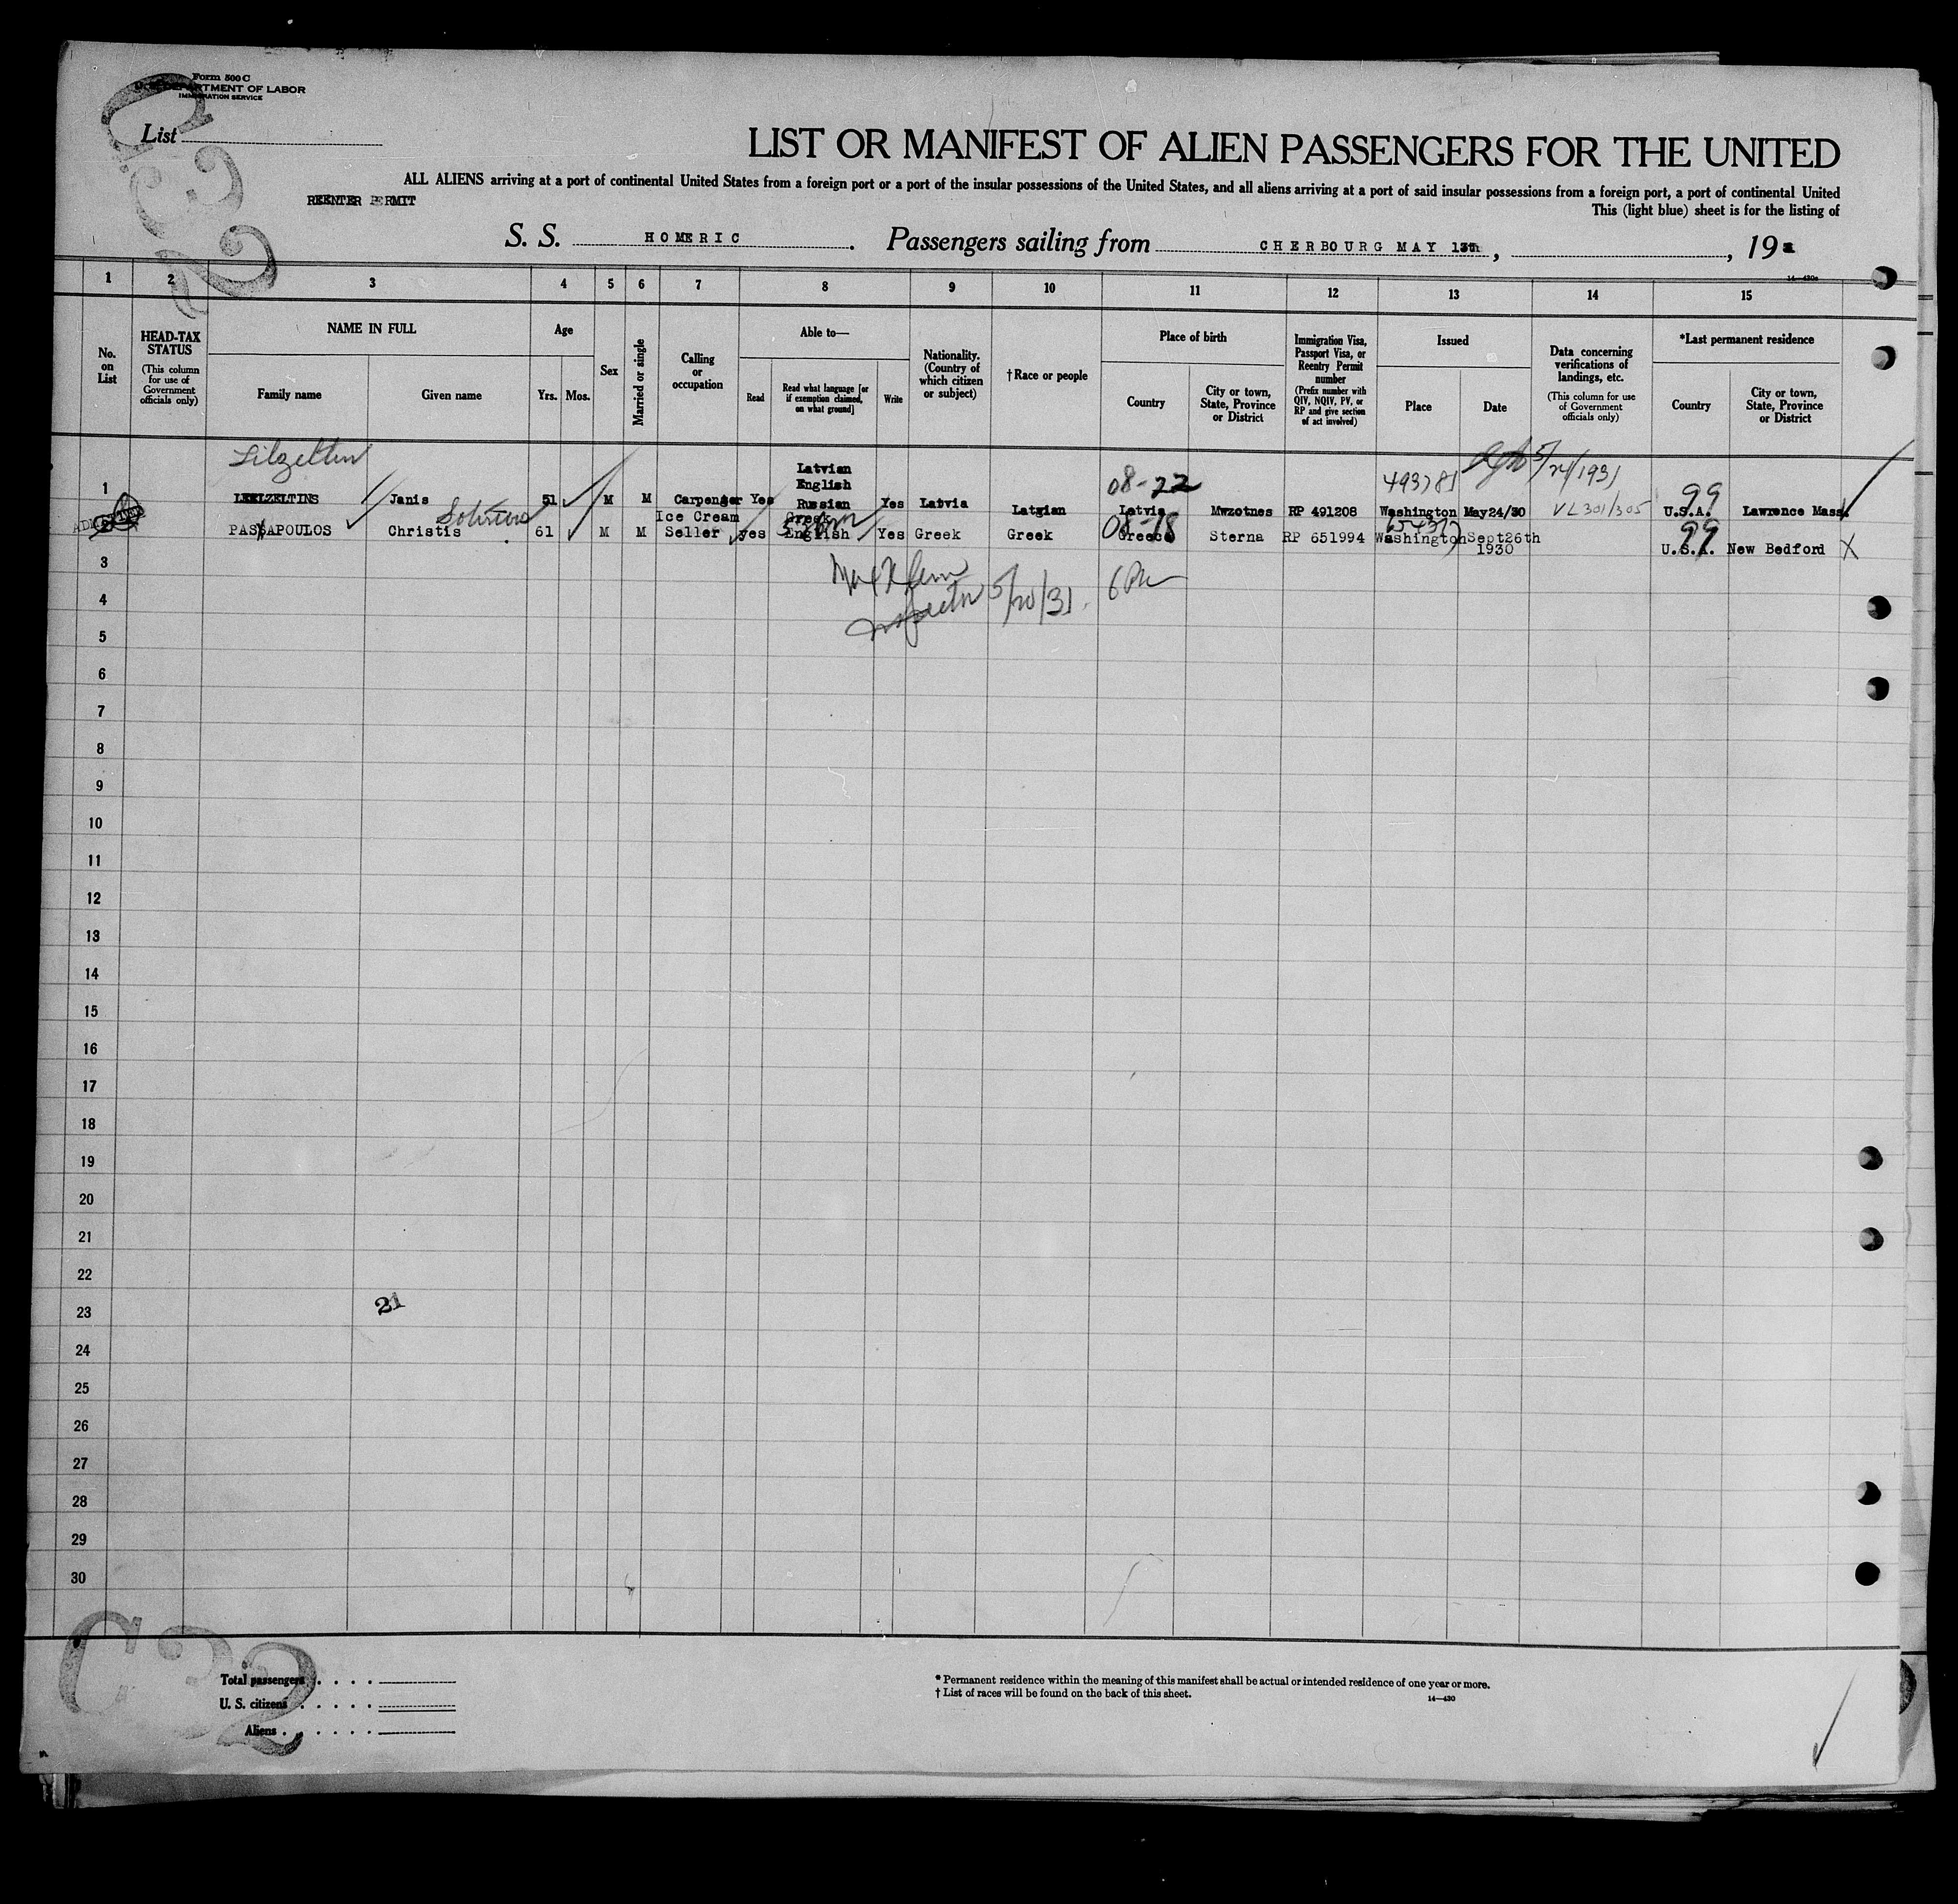 Form 500 C
U. S. DEPARTMENT OF LABOR
IMMIGRATION SERVICE
List
LIST OR MANIFEST OF ALIEN PASSENGERS FOR THE UNITED
ALL ALIENS arriving at a port of continental United States from a foreign port or a port of the insular possessions of the United States, and all aliens arriving at a port of said insular possessions from a foreign port, a port of continental United
REENTER PERMIT
This (light blue) sheet is for the listing of
S. S. HOMERIC. Passengers sailing from CHERBOURG MAY 13th, , 19
14—430a
1 2 3 4 5 6 7 8 9 10 11 12 13 14 15
No. on List
HEAD-TAX STATUS
(This column for use of Government officials only)
NAME IN FULL
Family name
Given name
Age
Yrs.
Mos.
Sex
Married or single
Calling or occupation
Able to—
Read
Read what language [or if exemption claimed, on what ground]
Write
Nationality. (Country of which citizen or subject)
†Race or people
Place of birth
Country
City or town, State, Province or District
Immigration Visa, Passport Visa, or Reentry Permit number
(Prefix number with QIV, NQIV, PV, or RP and give section of act involved)
Issued
Place
Date
Data concerning verifications of landings, etc.
(This column for use of Government officials only)
*Last permanent residence
Country
City or town, State, Province or District
5/24/1931
493781
08-22
99
VL 301/305
1 Janis 51 M M Carpenger Yes Latvian English Russian Yes Latvia Latgian Latvia Mwzotnes RP 491208 Washington May24/30 U.S.A. Lawrence Mass
08-18
99
2 PASSAPOULOS Christis 61 M M Ice Cream Seller yes Greek English Yes Greek Greek Greece Sterna RP 651994 Washington Sept26th 1930 U.S.A. New Bedford X
Inspector 5/20/31
3
4
5
6
7
8
9
10
11
12
13
14
15
16
17
18
19
20
21
22
23
21
24
25
26
27
28
29
30
C32
Total passengers
U. S. citizens
Aliens
* Permanent residence within the meaning of this manifest shall be actual or intended residence of one year or more.
† List of races will be found on the back of this sheet.
14—430